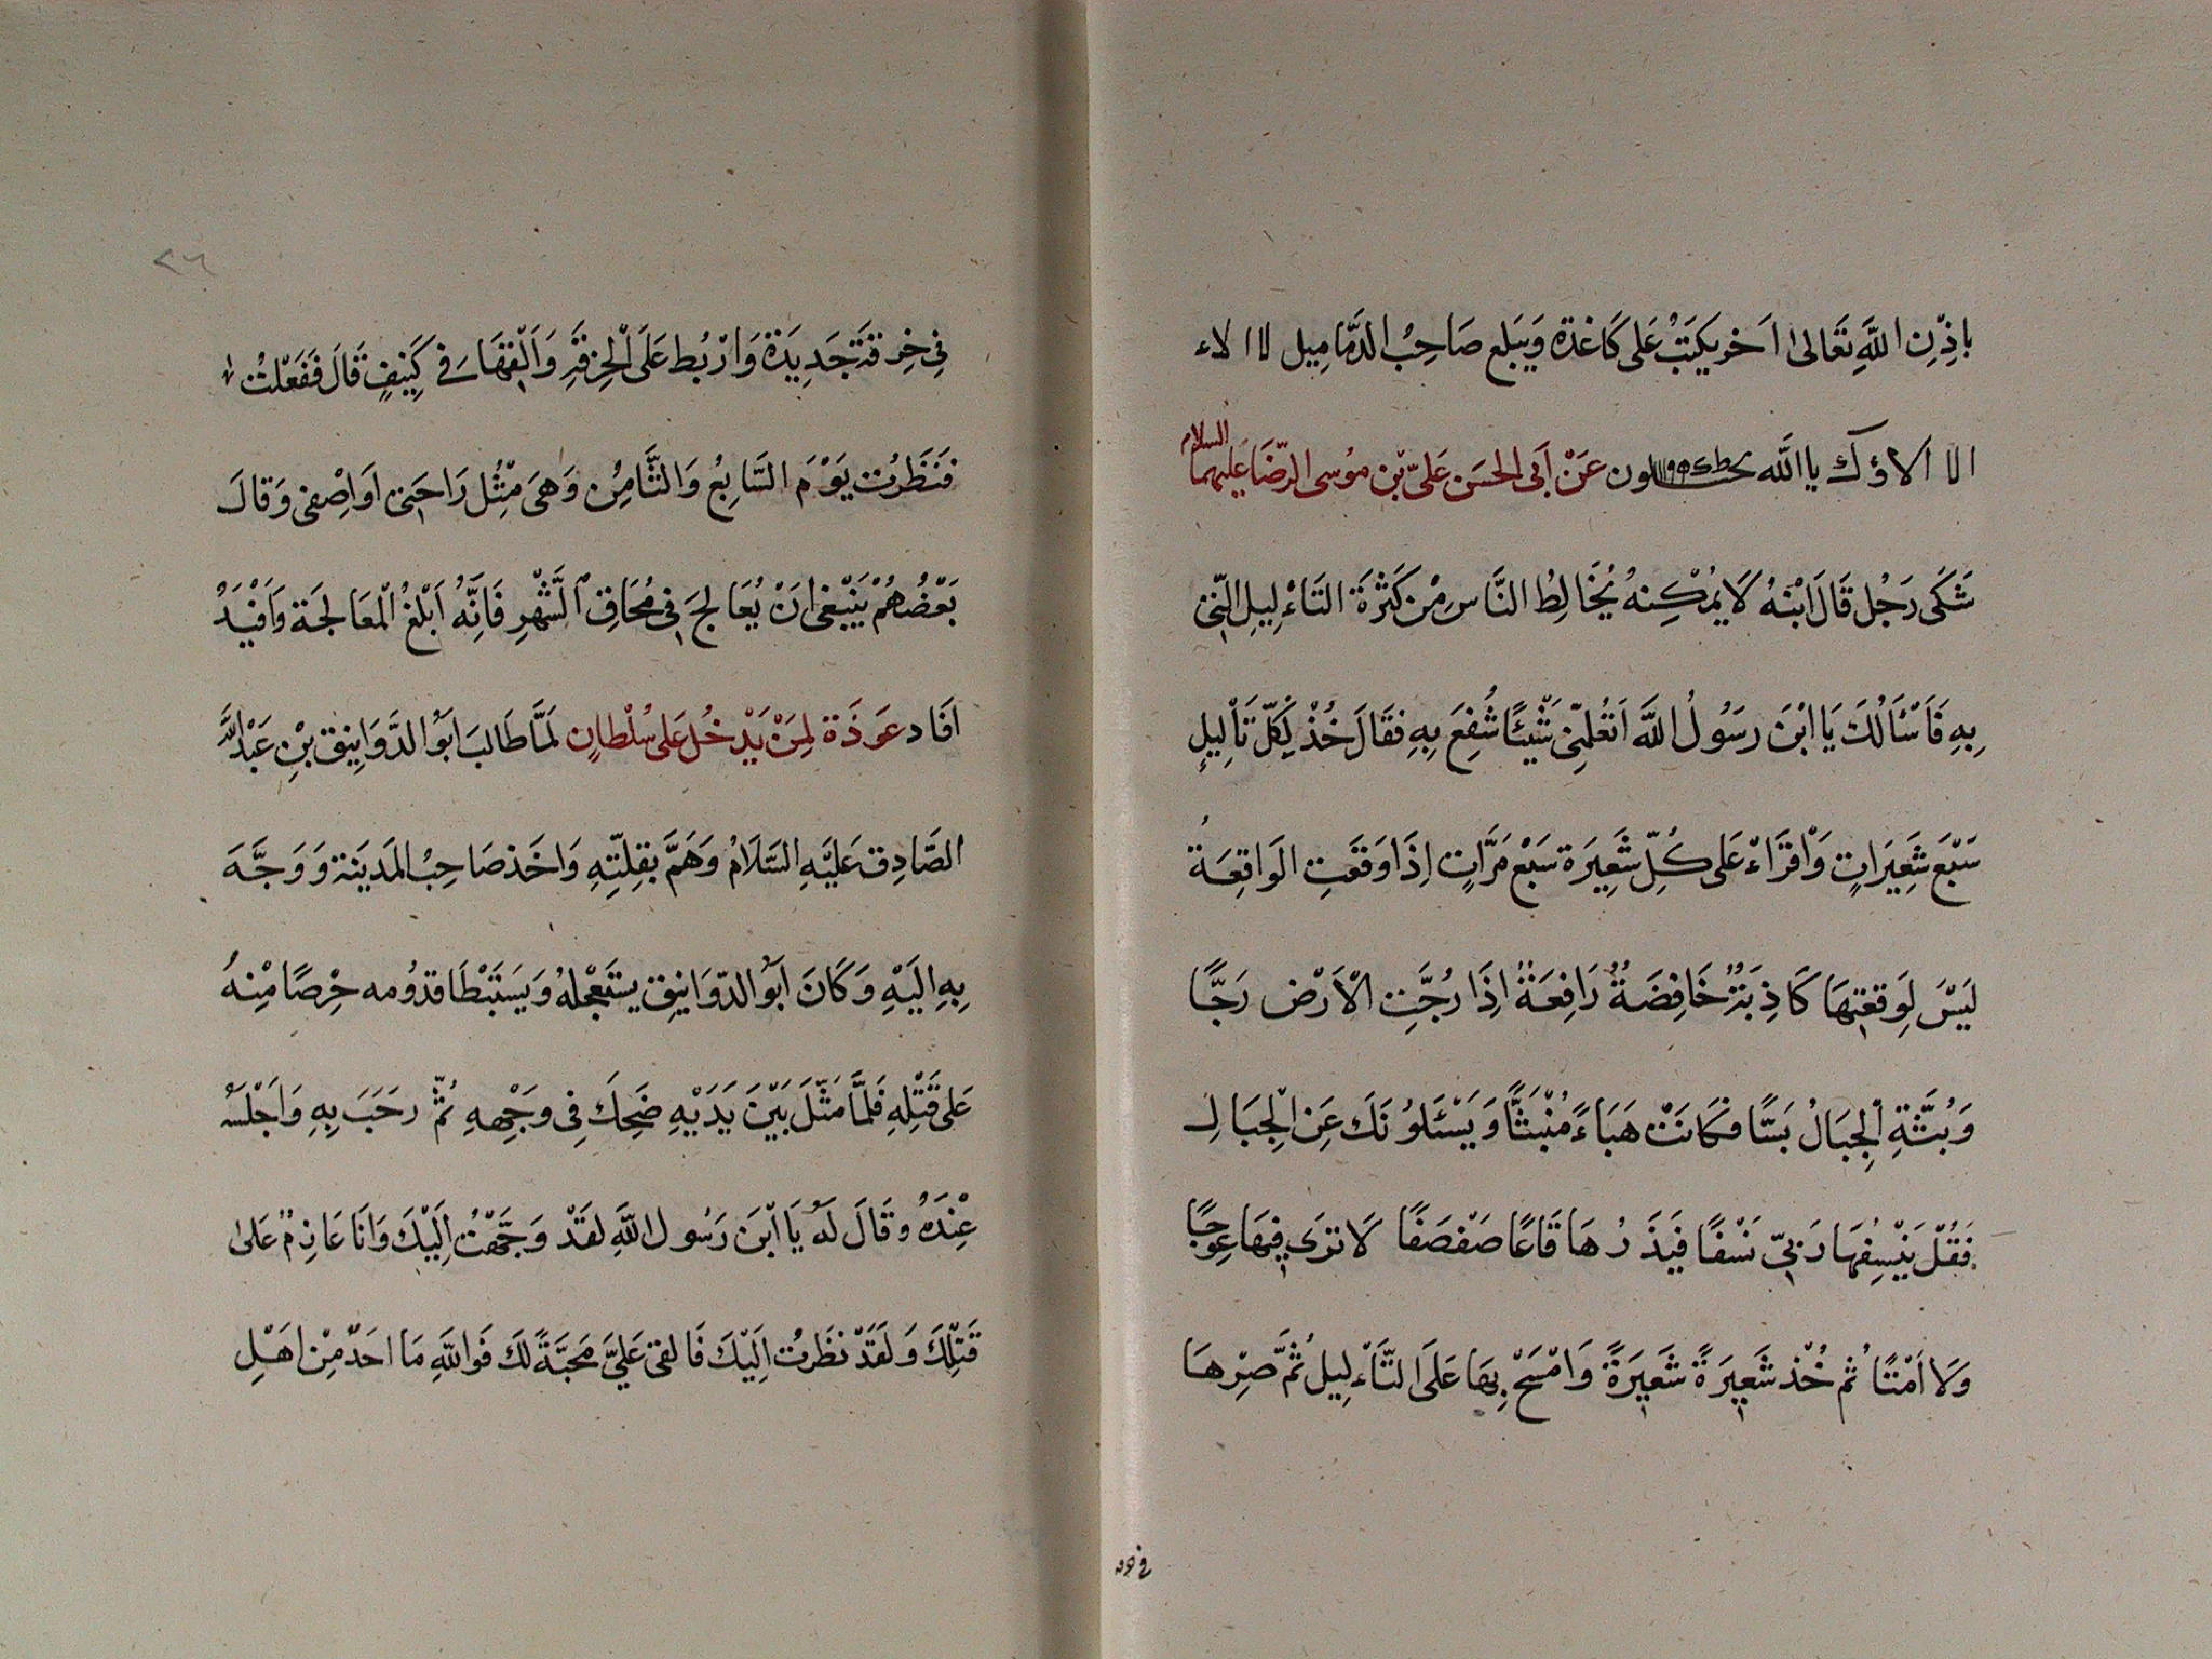 بِاِذْنِ اللَّهِ تَعَالىٰ اَخر يكتَبُ عَلى كَاغذة وَيَبلع صَاحِبُ الدَّمَاميل لا الاء
الا الاؤك يا الله عَنْ اَبى الحسَن عَلىّ بْن موُسى الرّضَا عَليهما السلام
شَكَى رَجُل قَالَ ابْنهُ لَا يُمْكِنهُ يُخَالِطُ النَّاس مِنْ كَثْرَة التَاءْلِيلِ الَّتى
بِهِ فَاَسْأَلُكَ يَا ابْنَ رسَوُلُ اللَّه اَتعُلِمّنى شَيْئًا شُفِعَ بِهِ فقَالَ خُذْ لِكُلّ تَأْلِيلٍ
سَبْعَ شَعِيَراتٍ وَاقَرَاءْ عَلى كُلِّ شَعِيرَة سَبْعَ مَرَّاتٍ اِذَا وَقعَتِ الوَاقِعَةُ
ليَسَ لِوَقعَتِهَا كَاذِبَةٌ خَافِضَةٌ رَافِعَةٌ اِذَا رُجَّتِ الْاَرْض رَجًّا
وَبُسَّةِ الْجِبَالُ بَسًّا فكَانَتْ هَبَاءً مُنْبَثًّا وَيَسْئَلوُنَكَ عَنِ الْجِبَالِ
فَقُلْ يَنْسِفُهَا رَبّى نَسْفًا فيَذَرُهَا قَاعًا صَفْصَفًا لَا ترَى فِيهَا عِوَجًا
وَلَا اَمْتًا ثُم خُذْ شَعِيرَةً شَعِيَرةً وَامْسَحْ بِهَا عَلَى التَّاءْلِيل ثُمَّ صِرّهَا
فى خرقة
٢٦
فِى خِرقةَ جَدِيَدة وَارْبُط عَلَى الْخِرقَةِ وَاَلْقِهَا فى كَنِيفٍ قَالَ فَفَعَلْتُ
فنَظَرْت يَوْمَ السَّابِعُ وَالثَّامِنُ وَهىَ مِثْلُ رَاحَتى اَو اصْفى وَقالَ
بَعْضُهُمْ يَنْبَغى انَ يُعَالِجَ فِى مُحَاقِ الشَّهْرِ فَاِنَّهُ اَبْلغُ الْمعَالجَة وَاَفْيَدُ
افَاد عَوَذَة لِمَنْ يَدْخُل عَلى سُلْطانٍ لمَّا طَالبَ ابَوُ الدَّوَانِيق بْنِ عَبْدِ اللَّه
الصَّادِق عَليَهِ السَّلَامُ وَهَمَّ بقِتلِهِ وَاخَذ صَاحِبُ المَدِينَة وَوَجَّهَ
بِهِ اليَهِ وَكَانَ اَبَوُ الدّوَانِيق يستَعجْلهُ وَيَستَبْطَا قدُومه حِرْصًا مْنِهُ
عَلى قَتْلِهِ فَلمَّا مَثّلَ بَيْنَ يَدَيْهِ ضَحِكَ فِى وجَهِْهِ ثُمّ رحَبَ بِهِ وَاَجْلَسَهُ
عِنْدَهُ وقَالَ لَهُ يَا ابْنَ رَسُول اللَّهِ لقَدْ وَجَّهْتُ اِلَيْكَ وَانَا عَازِمٌ عَلىٰ
قَتْلِكَ وَلَقَدّ نظَرتُ اِلَيْكَ فَالقى عَلَيَّ مَحَبَّةً لكَ فَواللَّهِ مَا احَدٌ مِنْ اهَلِ